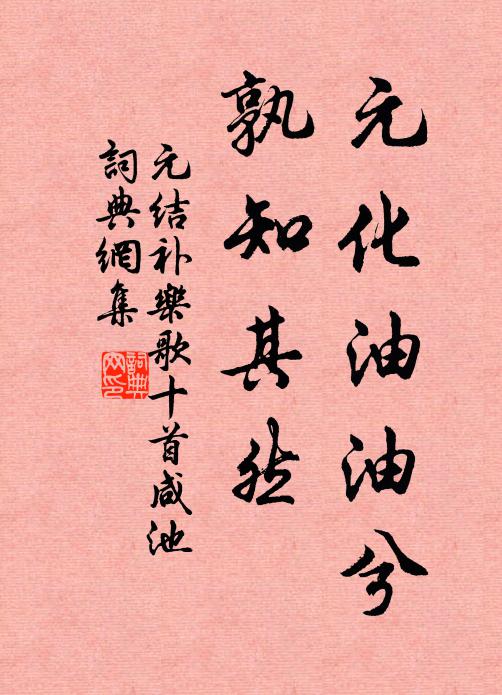 元化油油兮
孰知其然
元结补樂歌十首咸池
詞典網集
詞典网印